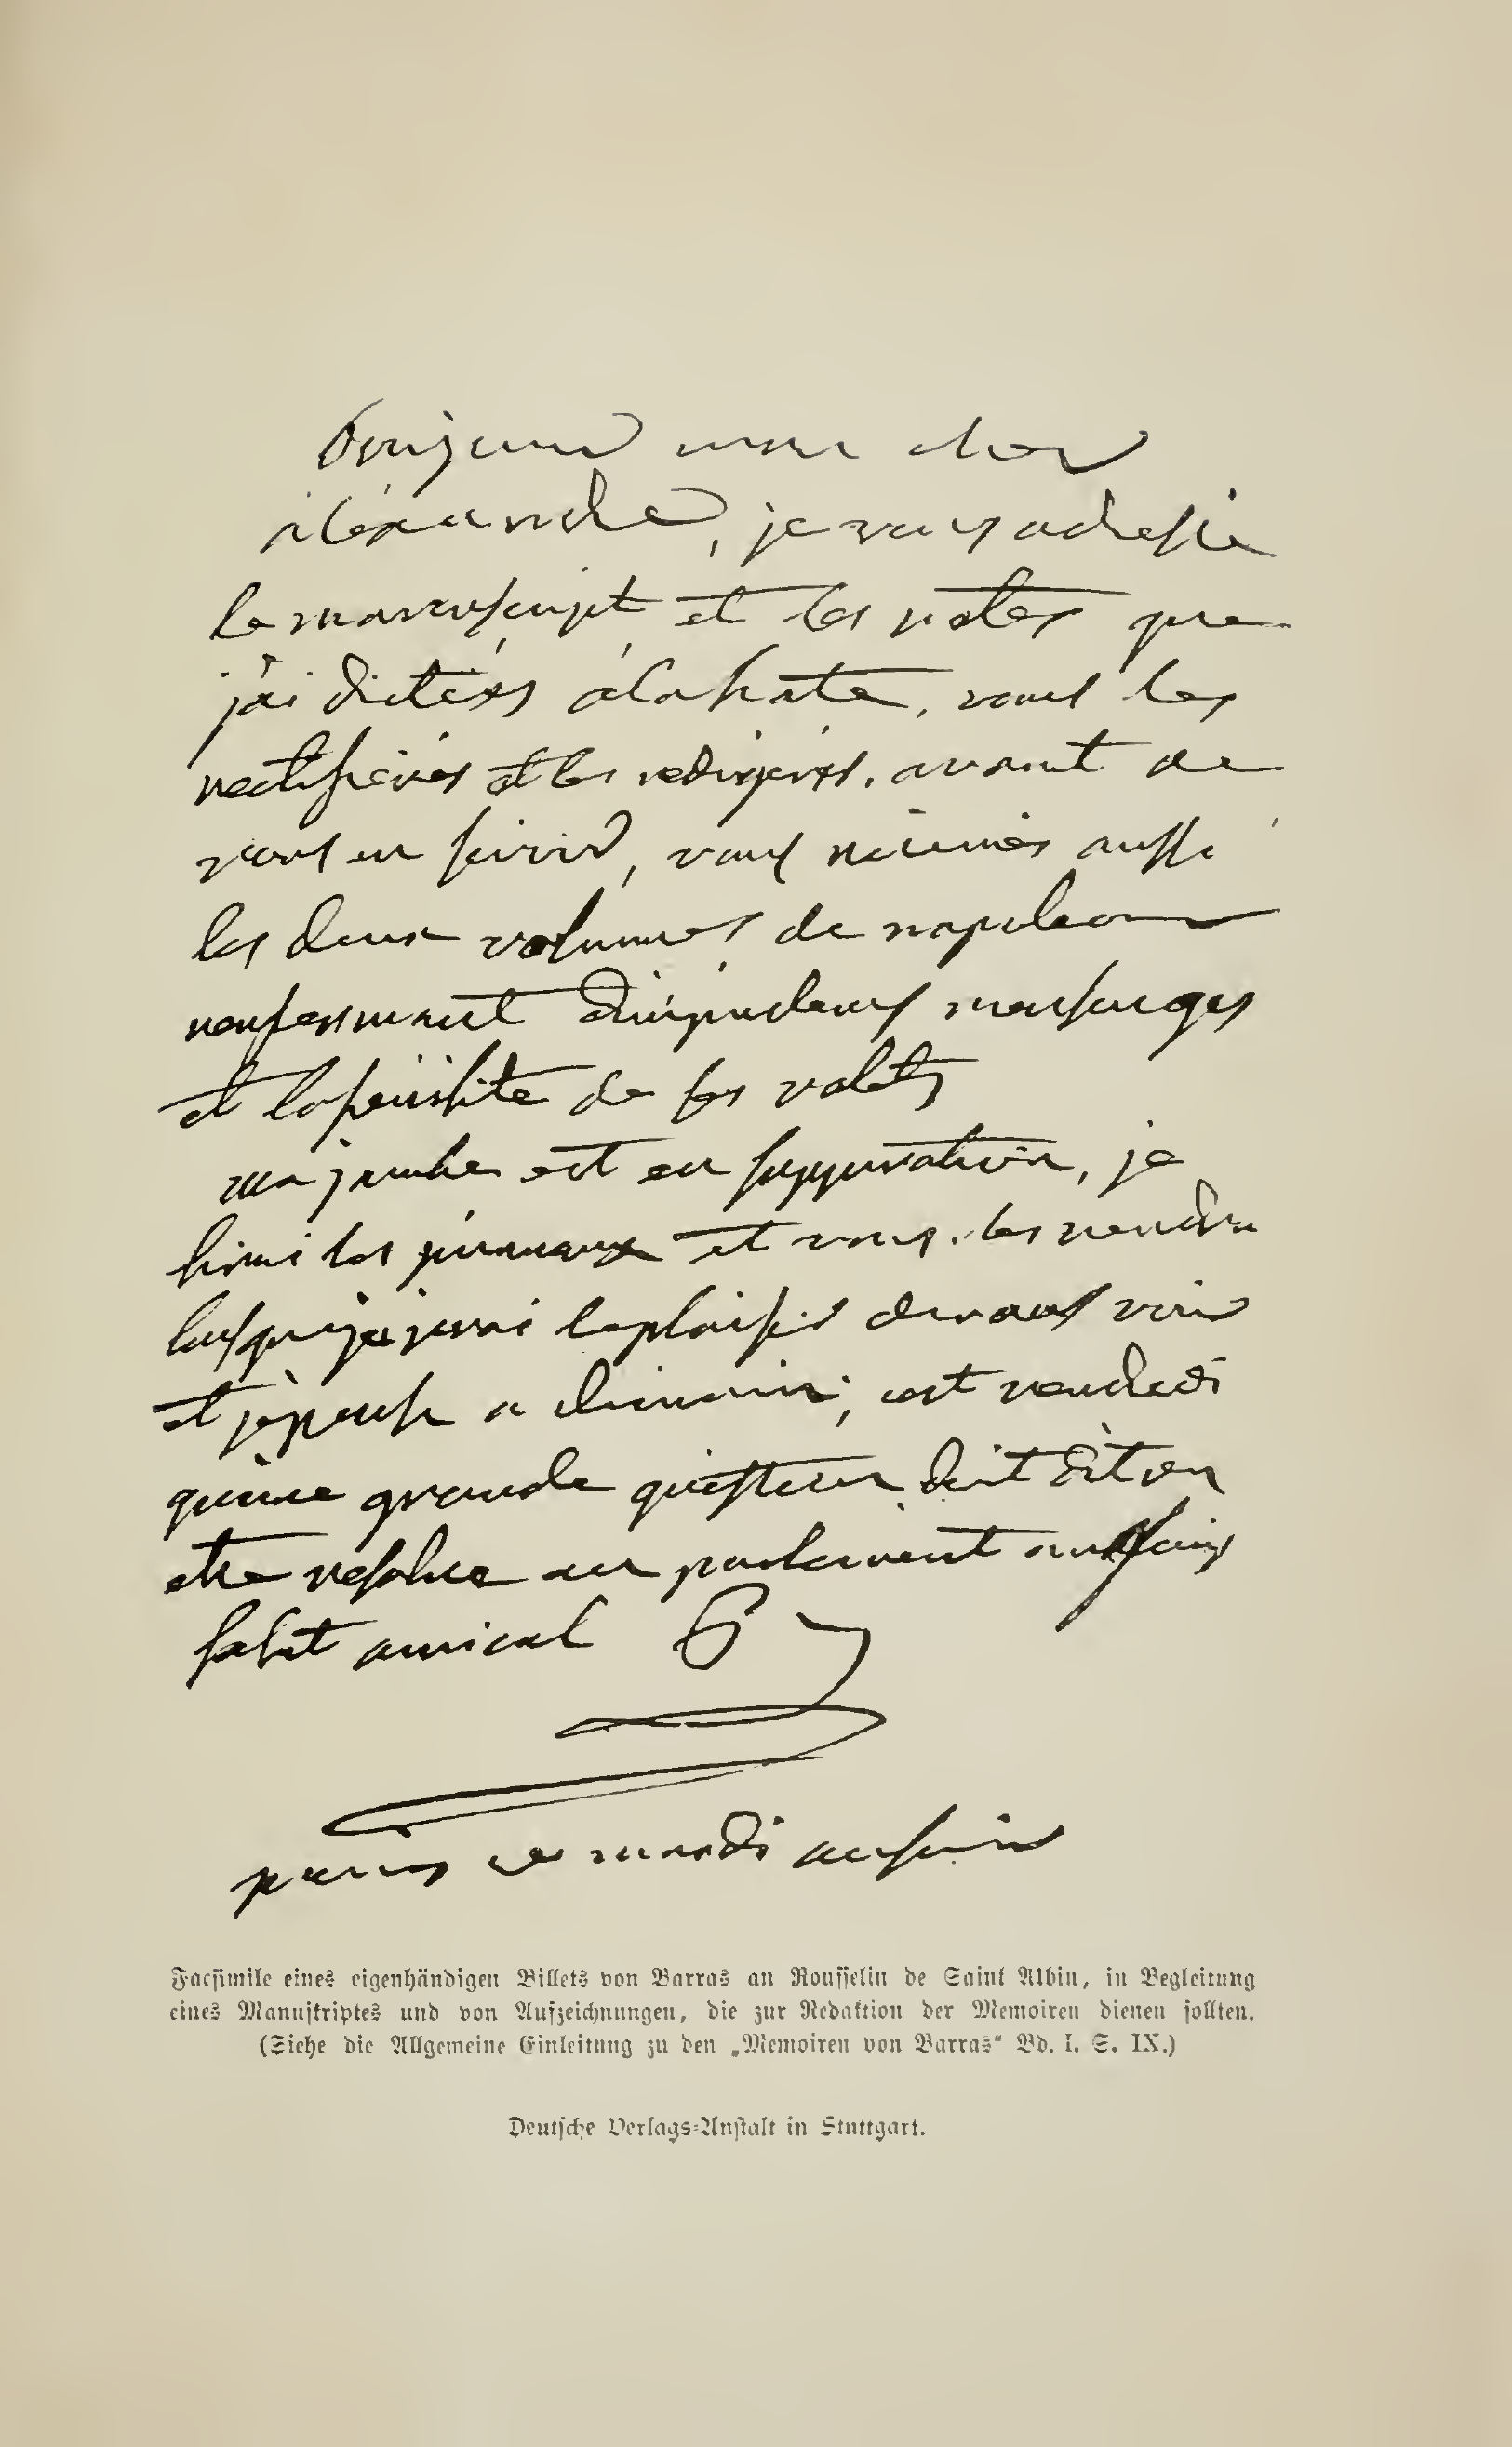 bonjour mon cher
alexandre, je vous adresse
le manuscript et les notes que
j'ai dictées à la hate, vous les
rectifierés et les redigerés, avant de
vous en servir, vous recevrés aussi
les deux volumes de napoleon
renfermant d'impudens mensonges
et la de ses valets
ma jambe est en suppuration, je
lirai les journaux et vous les rendrai
lorsque j'aurai le plaisir de vous voir
et je pense a demain, c'est vendredi
qu'une grande question doit dit on
etre resolue au parlement anglais
salut amical B
paris ce mardi au soir
Facsimile eines eigenhändigen Billets von Barras an Rousselin de Saint Albin, in Begleitung
eines Manuskriptes und von Aufzeichnungen, die zur Redaktion der Memoiren dienen sollten.
(Siehe die Allgemeine Einleitung zu den „Memoiren von Barras“ Bd. I. S. IX.)
Deutsche Verlags-Anstalt in Stuttgart.